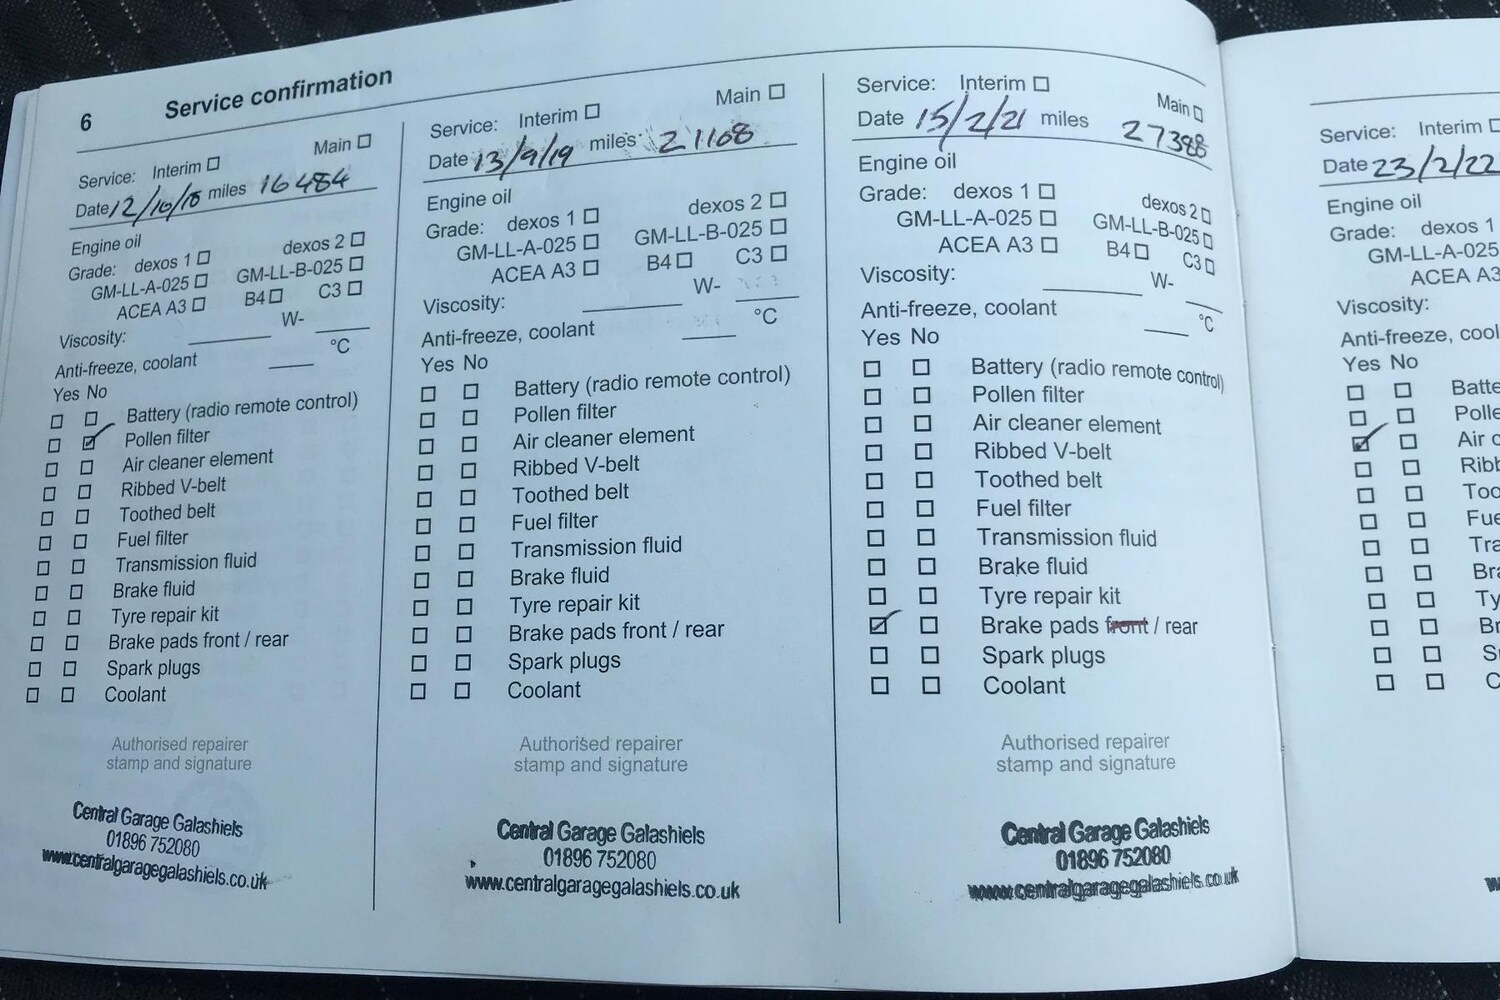 6 Service confirmation
Service: Interim ☐ Main ☐
Date 12/10/18 miles 16484
Engine oil
Grade: dexos 1 ☐ dexos 2 ☐
GM-LL-A-025 ☐ GM-LL-B-025 ☐
ACEA A3 ☐ B4 ☐ C3 ☐
Viscosity: W-
Anti-freeze, coolant °C
Yes No
☐ ☐ Battery (radio remote control)
☐ ☑ Pollen filter
☐ ☐ Air cleaner element
☐ ☐ Ribbed V-belt
☐ ☐ Toothed belt
☐ ☐ Fuel filter
☐ ☐ Transmission fluid
☐ ☐ Brake fluid
☐ ☐ Tyre repair kit
☐ ☐ Brake pads front / rear
☐ ☐ Spark plugs
☐ ☐ Coolant
Authorised repairer
stamp and signature
Central Garage Galashiels
01896 752080
www.centralgaragegalashiels.co.uk
Service: Interim ☐ Main ☐
Date 13/9/19 miles 21108
Engine oil
Grade: dexos 1 ☐ dexos 2 ☐
GM-LL-A-025 ☐ GM-LL-B-025 ☐
ACEA A3 ☐ B4 ☐ C3 ☐
Viscosity: W-
Anti-freeze, coolant °C
Yes No
☐ ☐ Battery (radio remote control)
☐ ☐ Pollen filter
☐ ☐ Air cleaner element
☐ ☐ Ribbed V-belt
☐ ☐ Toothed belt
☐ ☐ Fuel filter
☐ ☐ Transmission fluid
☐ ☐ Brake fluid
☐ ☐ Tyre repair kit
☐ ☐ Brake pads front / rear
☐ ☐ Spark plugs
☐ ☐ Coolant
Authorised repairer
stamp and signature
Central Garage Galashiels
01896 752080
www.centralgaragegalashiels.co.uk
Service: Interim ☐ Main ☐
Date 15/2/21 miles 27398
Engine oil
Grade: dexos 1 ☐ dexos 2 ☐
GM-LL-A-025 ☐ GM-LL-B-025 ☐
ACEA A3 ☐ B4 ☐ C3 ☐
Viscosity: W-
Anti-freeze, coolant °C
Yes No
☐ ☐ Battery (radio remote control)
☐ ☐ Pollen filter
☐ ☐ Air cleaner element
☐ ☐ Ribbed V-belt
☐ ☐ Toothed belt
☐ ☐ Fuel filter
☐ ☐ Transmission fluid
☐ ☐ Brake fluid
☐ ☐ Tyre repair kit
☑ ☐ Brake pads front / rear
☐ ☐ Spark plugs
☐ ☐ Coolant
Authorised repairer
stamp and signature
Central Garage Galashiels
01896 752080
www.centralgaragegalashiels.co.uk
Service: Interim ☐
Date 23/2/22
Engine oil
Grade: dexos 1
GM-LL-A-025
ACEA A3
Viscosity:
Anti-freeze, cool
Yes No
☐ ☐ Batte
☐ ☐ Polle
☑ ☐ Air c
☐ ☐ Ribb
☐ ☐ Too
☐ ☐ Fue
☐ ☐ Tra
☐ ☐ Bra
☐ ☐ Ty
☐ ☐ Br
☐ ☐ S
☐ ☐ C
w